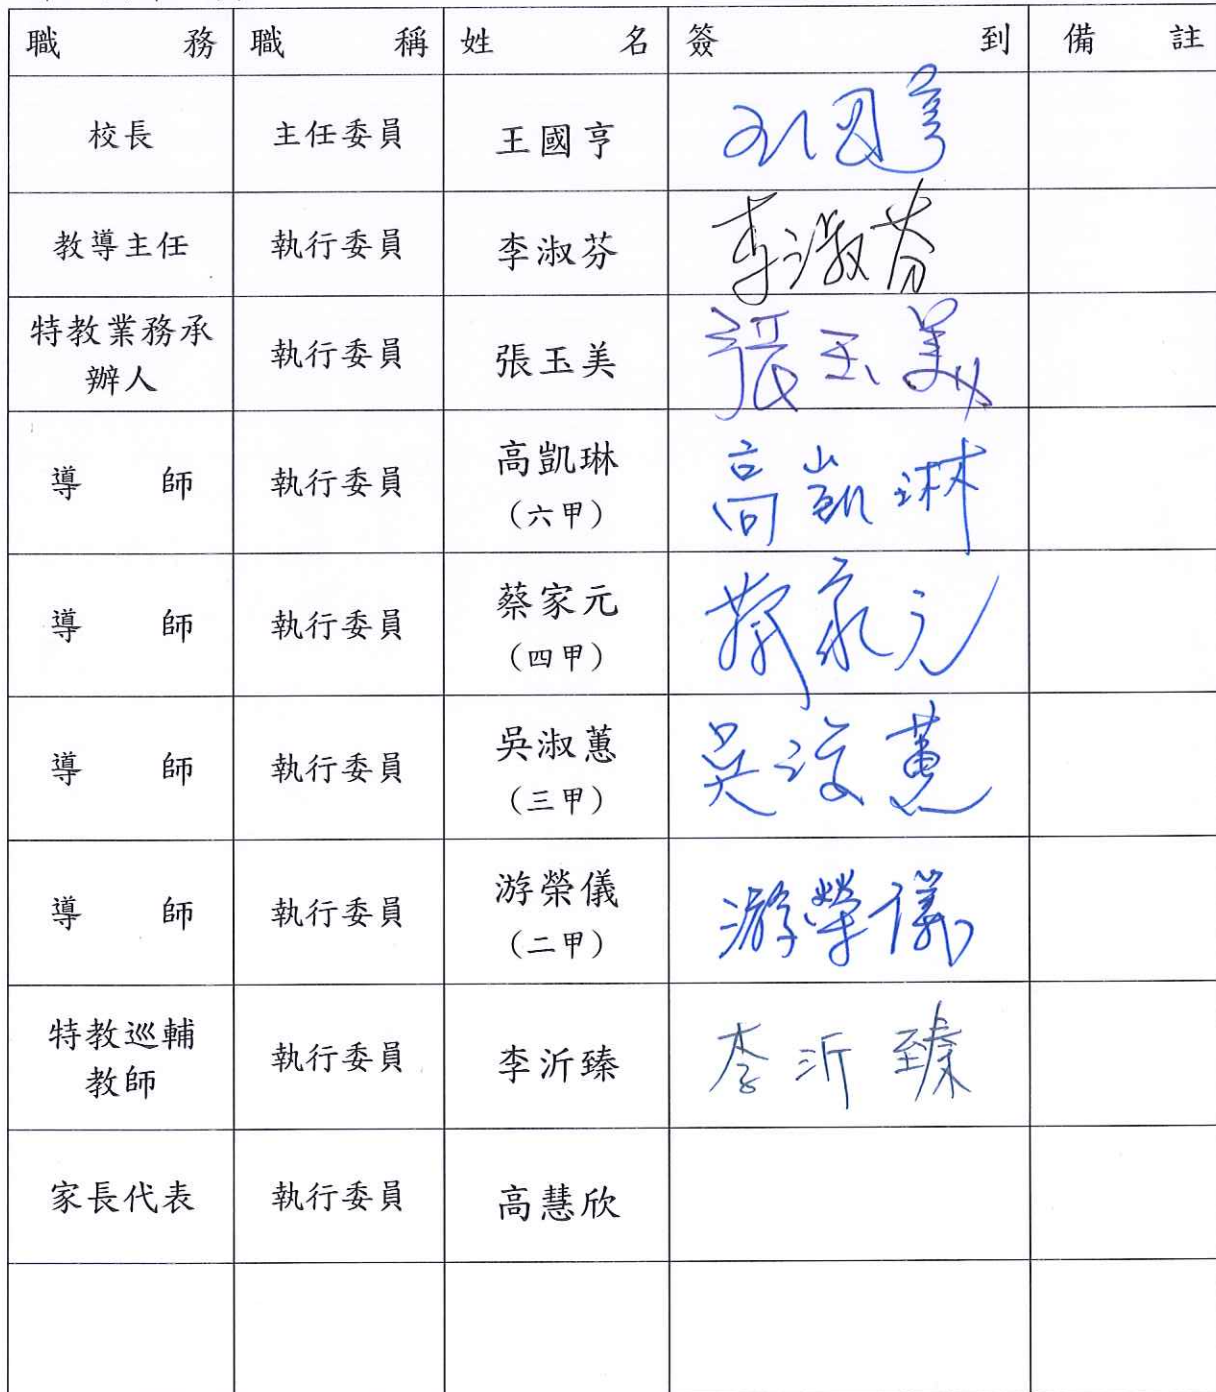 職務 職稱 姓名 簽到 備註
校長 主任委員 王國亨 王國亨
教導主任 執行委員 李淑芬 李淑芬
特教業務承
辦人 執行委員 張玉美 張玉美
導師 執行委員 高凱琳 高凱琳
(六甲)
導師 執行委員 蔡家元 蔡家元
(四甲)
導師 執行委員 吳淑蕙 吳淑蕙
(三甲)
導師 執行委員 游榮儀 游榮儀
(二甲)
特教巡輔
教師 執行委員 李沂臻 李沂臻
家長代表 執行委員 高慧欣